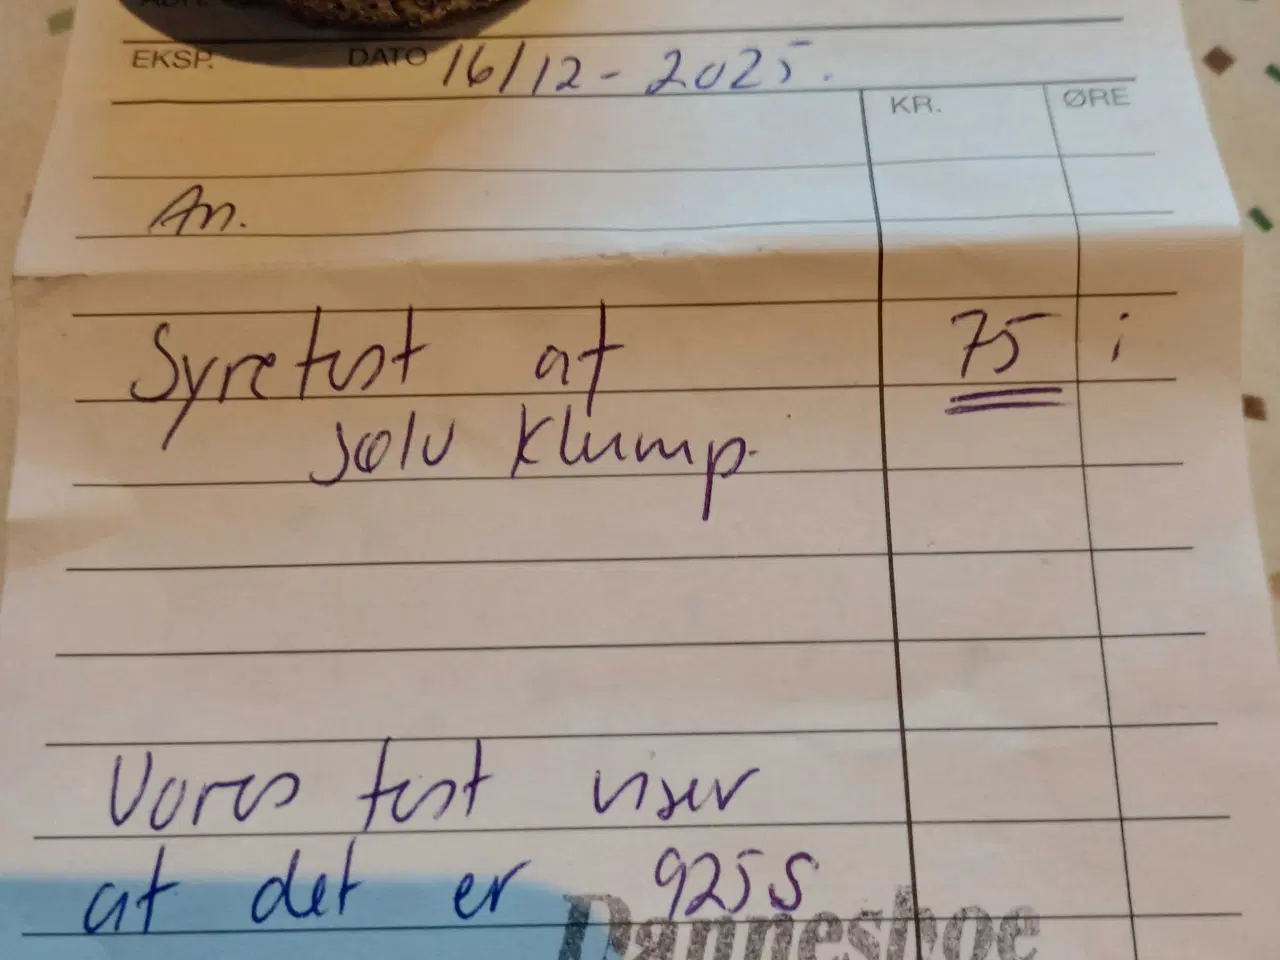 EKSP. DATO 16/12-2025.
KR. ØRE
An.
Syretest af 75 ;
sølv klump.
Vores test viser
at det er 925S
Danneshoe